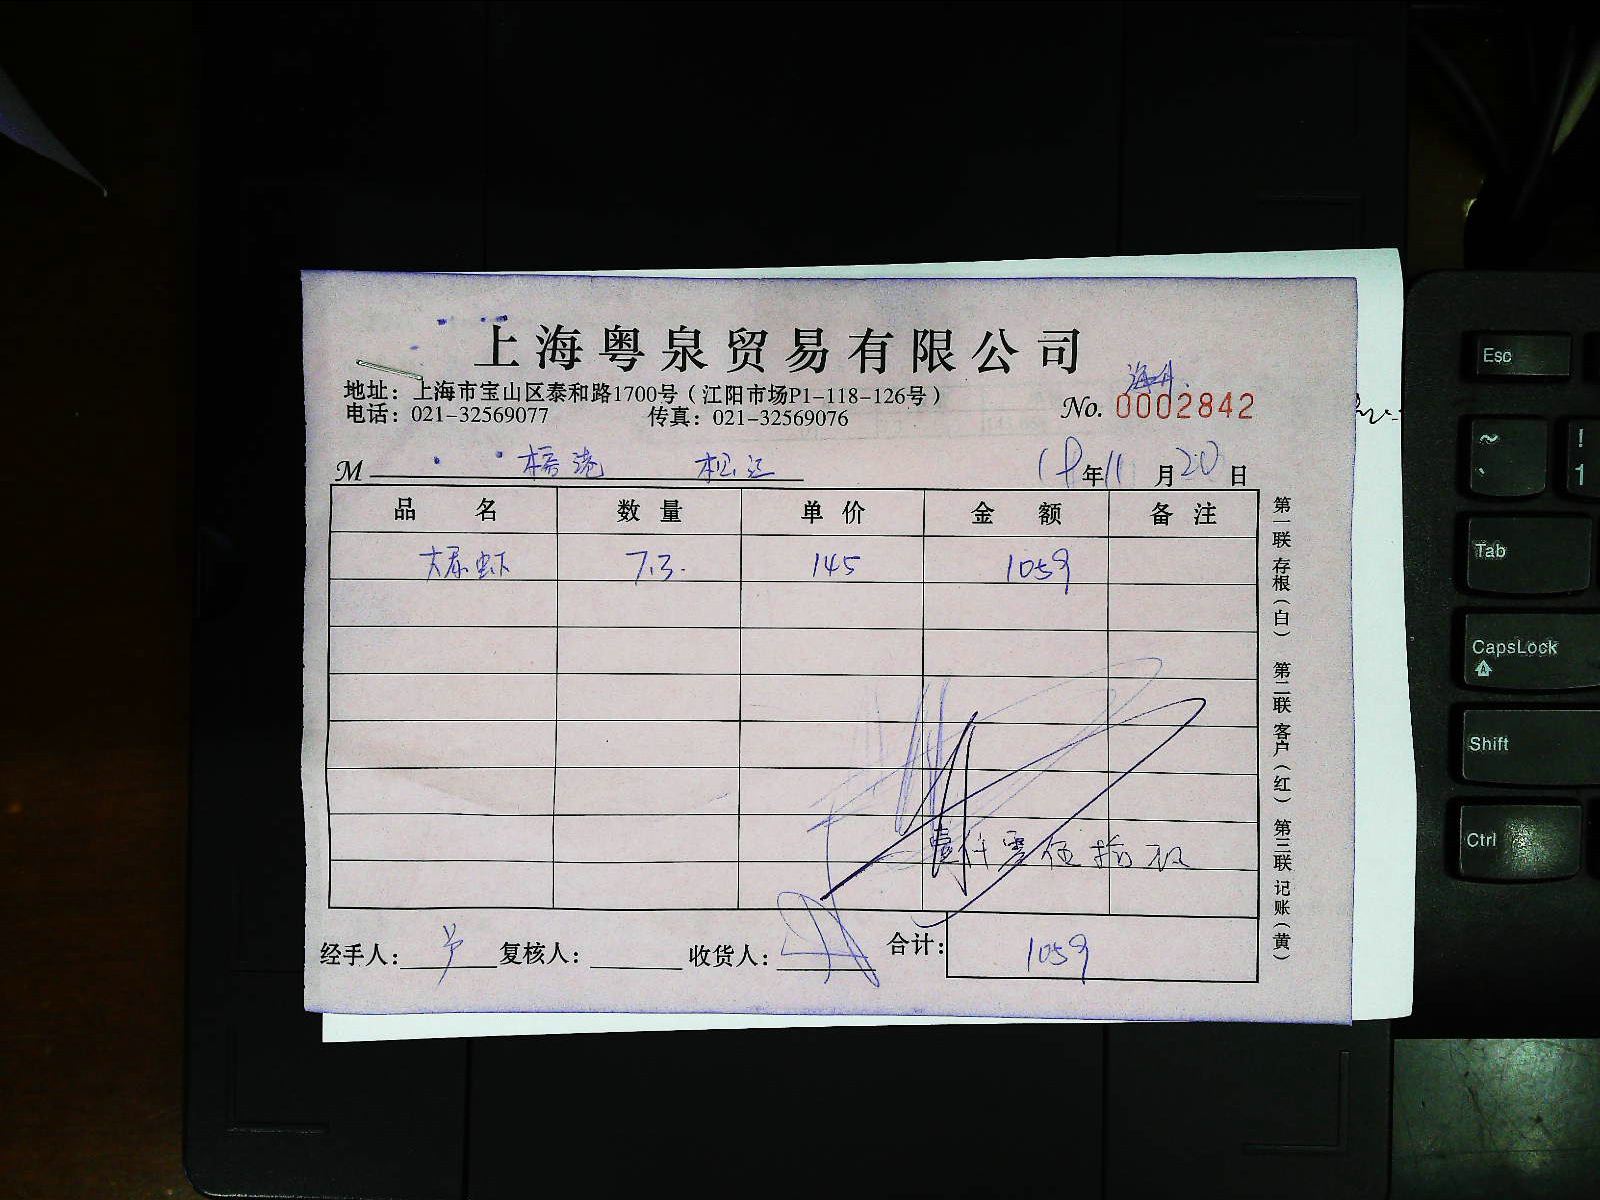 上海粤泉贸易有限公司
地址：上海市宝山区泰和路1700号（江阳市场P1-118-126号）
电话：021-32569077 传真：021-32569076
No. 0002842
M 松江 18年11月20日
品名 数量 单价 金额 备注
虾 7.3. 145 1059
壹仟零伍拾
经手人： 复核人： 收货人： 合计： 1059
第一联 存根（白） 第二联 客户（红） 第三联 记账（黄）
Esc
~ `
! 1
Tab
CapsLock
A
Shift
Ctrl